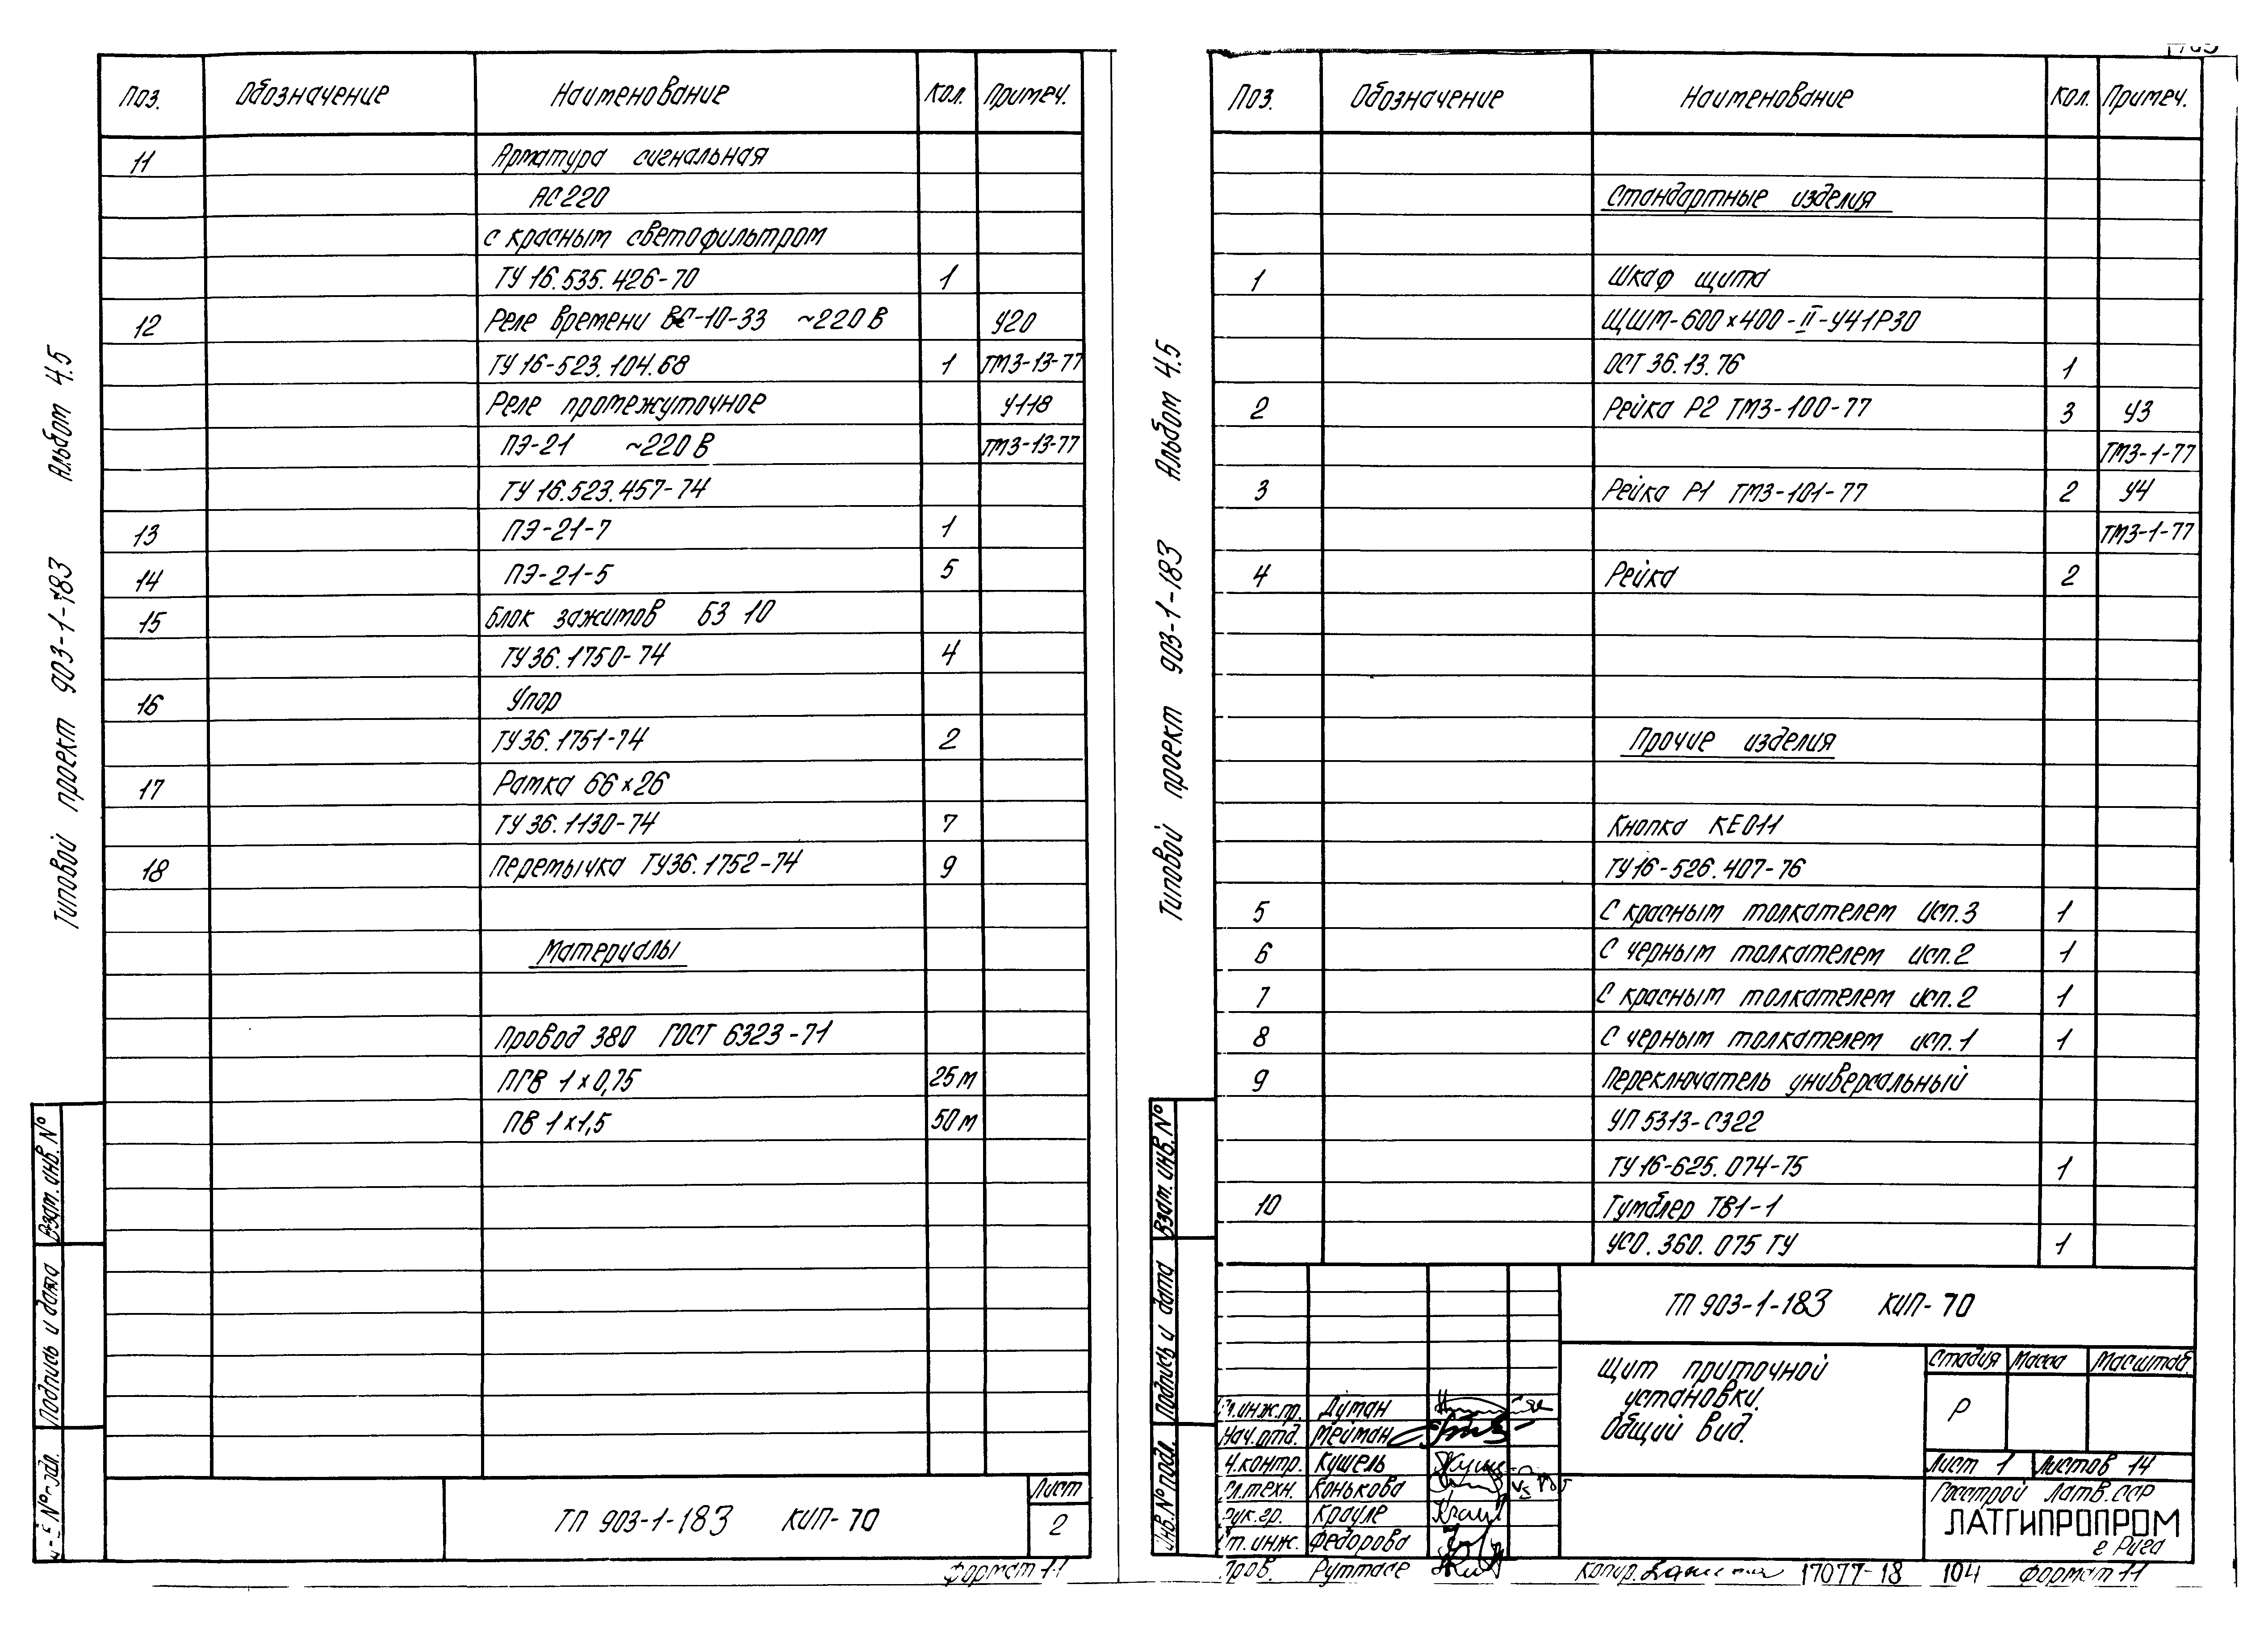 Поз. Обозначение Наименование Кол. Примеч.
11 Арматура сигнальная
АС220
с красным светофильтром
ТУ 16.535.426-70 1
12 Реле времени ВС-10-33 ~220 В У20
ТУ 16-523.104.68 1 ТМ3-13-77
Реле промежуточное У118
ПЭ-21 ~220 В ТМ3-13-77
ТУ 16.523.457-74
13 ПЭ-21-7 1
14 ПЭ-21-5 5
15 Блок зажимов БЗ 10
ТУ 36.1750-74 4
16 Упор
ТУ 36.1751-74 2
17 Рамка 66×26
ТУ 36.1130-74 7
18 Перемычка ТУ36.1752-74 9
Материалы
Провод 380 ГОСТ 6323-71
ПГВ 1×0,75 25 м
ПВ 1×1,5 50 м
ТП 903-1-183 КИП-70
Лист
2
Формат 11
Типовой проект 903-1-183 Альбом 4.5
Взам. инв. №
Подпись и дата
Поз. Обозначение Наименование Кол. Примеч.
Стандартные изделия
1 Шкаф щита
ЩШМ-600×400-II-У41Р30
ОСТ 36.13.76 1
2 Рейка Р2 ТМ3-100-77 3 У3
ТМ3-1-77
3 Рейка Р1 ТМ3-101-77 2 У4
ТМ3-1-77
4 Рейка 2
Прочие изделия
Кнопка КЕ011
ТУ16-526.407-76
5 С красным толкателем исп.3 1
6 С черным толкателем исп.2 1
7 С красным толкателем исп.2 1
8 С черным толкателем исп.1 1
9 Переключатель универсальный
УП 5313-С322
ТУ 16-625.074-75 1
10 Тумблер ТВ1-1
УСО.360.075 ТУ 1
ТП 903-1-183 КИП-70
Щит приточной
установки.
Общий вид.
Стадия Масса Масштаб
Р
Лист 1 Листов 14
Госстрой Латв.ССР
ЛАТГИПРОПРОМ
г Рига
Гл.инж.пр. Думан
Нач.отд. Мейман
Н.контр. Кушель
Гл.техн. Конькова
Рук.гр. Крауле
Ст. инж. Федорова
Пров. Руттасе
Копир. 17077-18 104 Формат 11
Типовой проект 903-1-183 Альбом 4.5
Взам. инв. №
Подпись и дата
Инв. № подл.